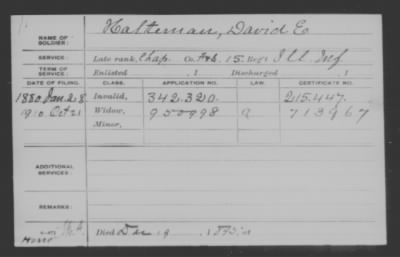 NAME OF SOLDIER: Halteman, David E.
SERVICE: Late rank, Chap. Co. F&S, 15 Reg't Ill. Inf
TERM OF SERVICE: Enlisted , 1 Discharged , 1
DATE OF FILING. CLASS. APPLICATION NO. LAW. CERTIFICATE NO.
1880 Jan. 28 Invalid, 342.320. 215.447.
1910 Oct 21 Widow, 950998 713967
Minor,
ADDITIONAL SERVICES:
REMARKS:
Died 19 , 1